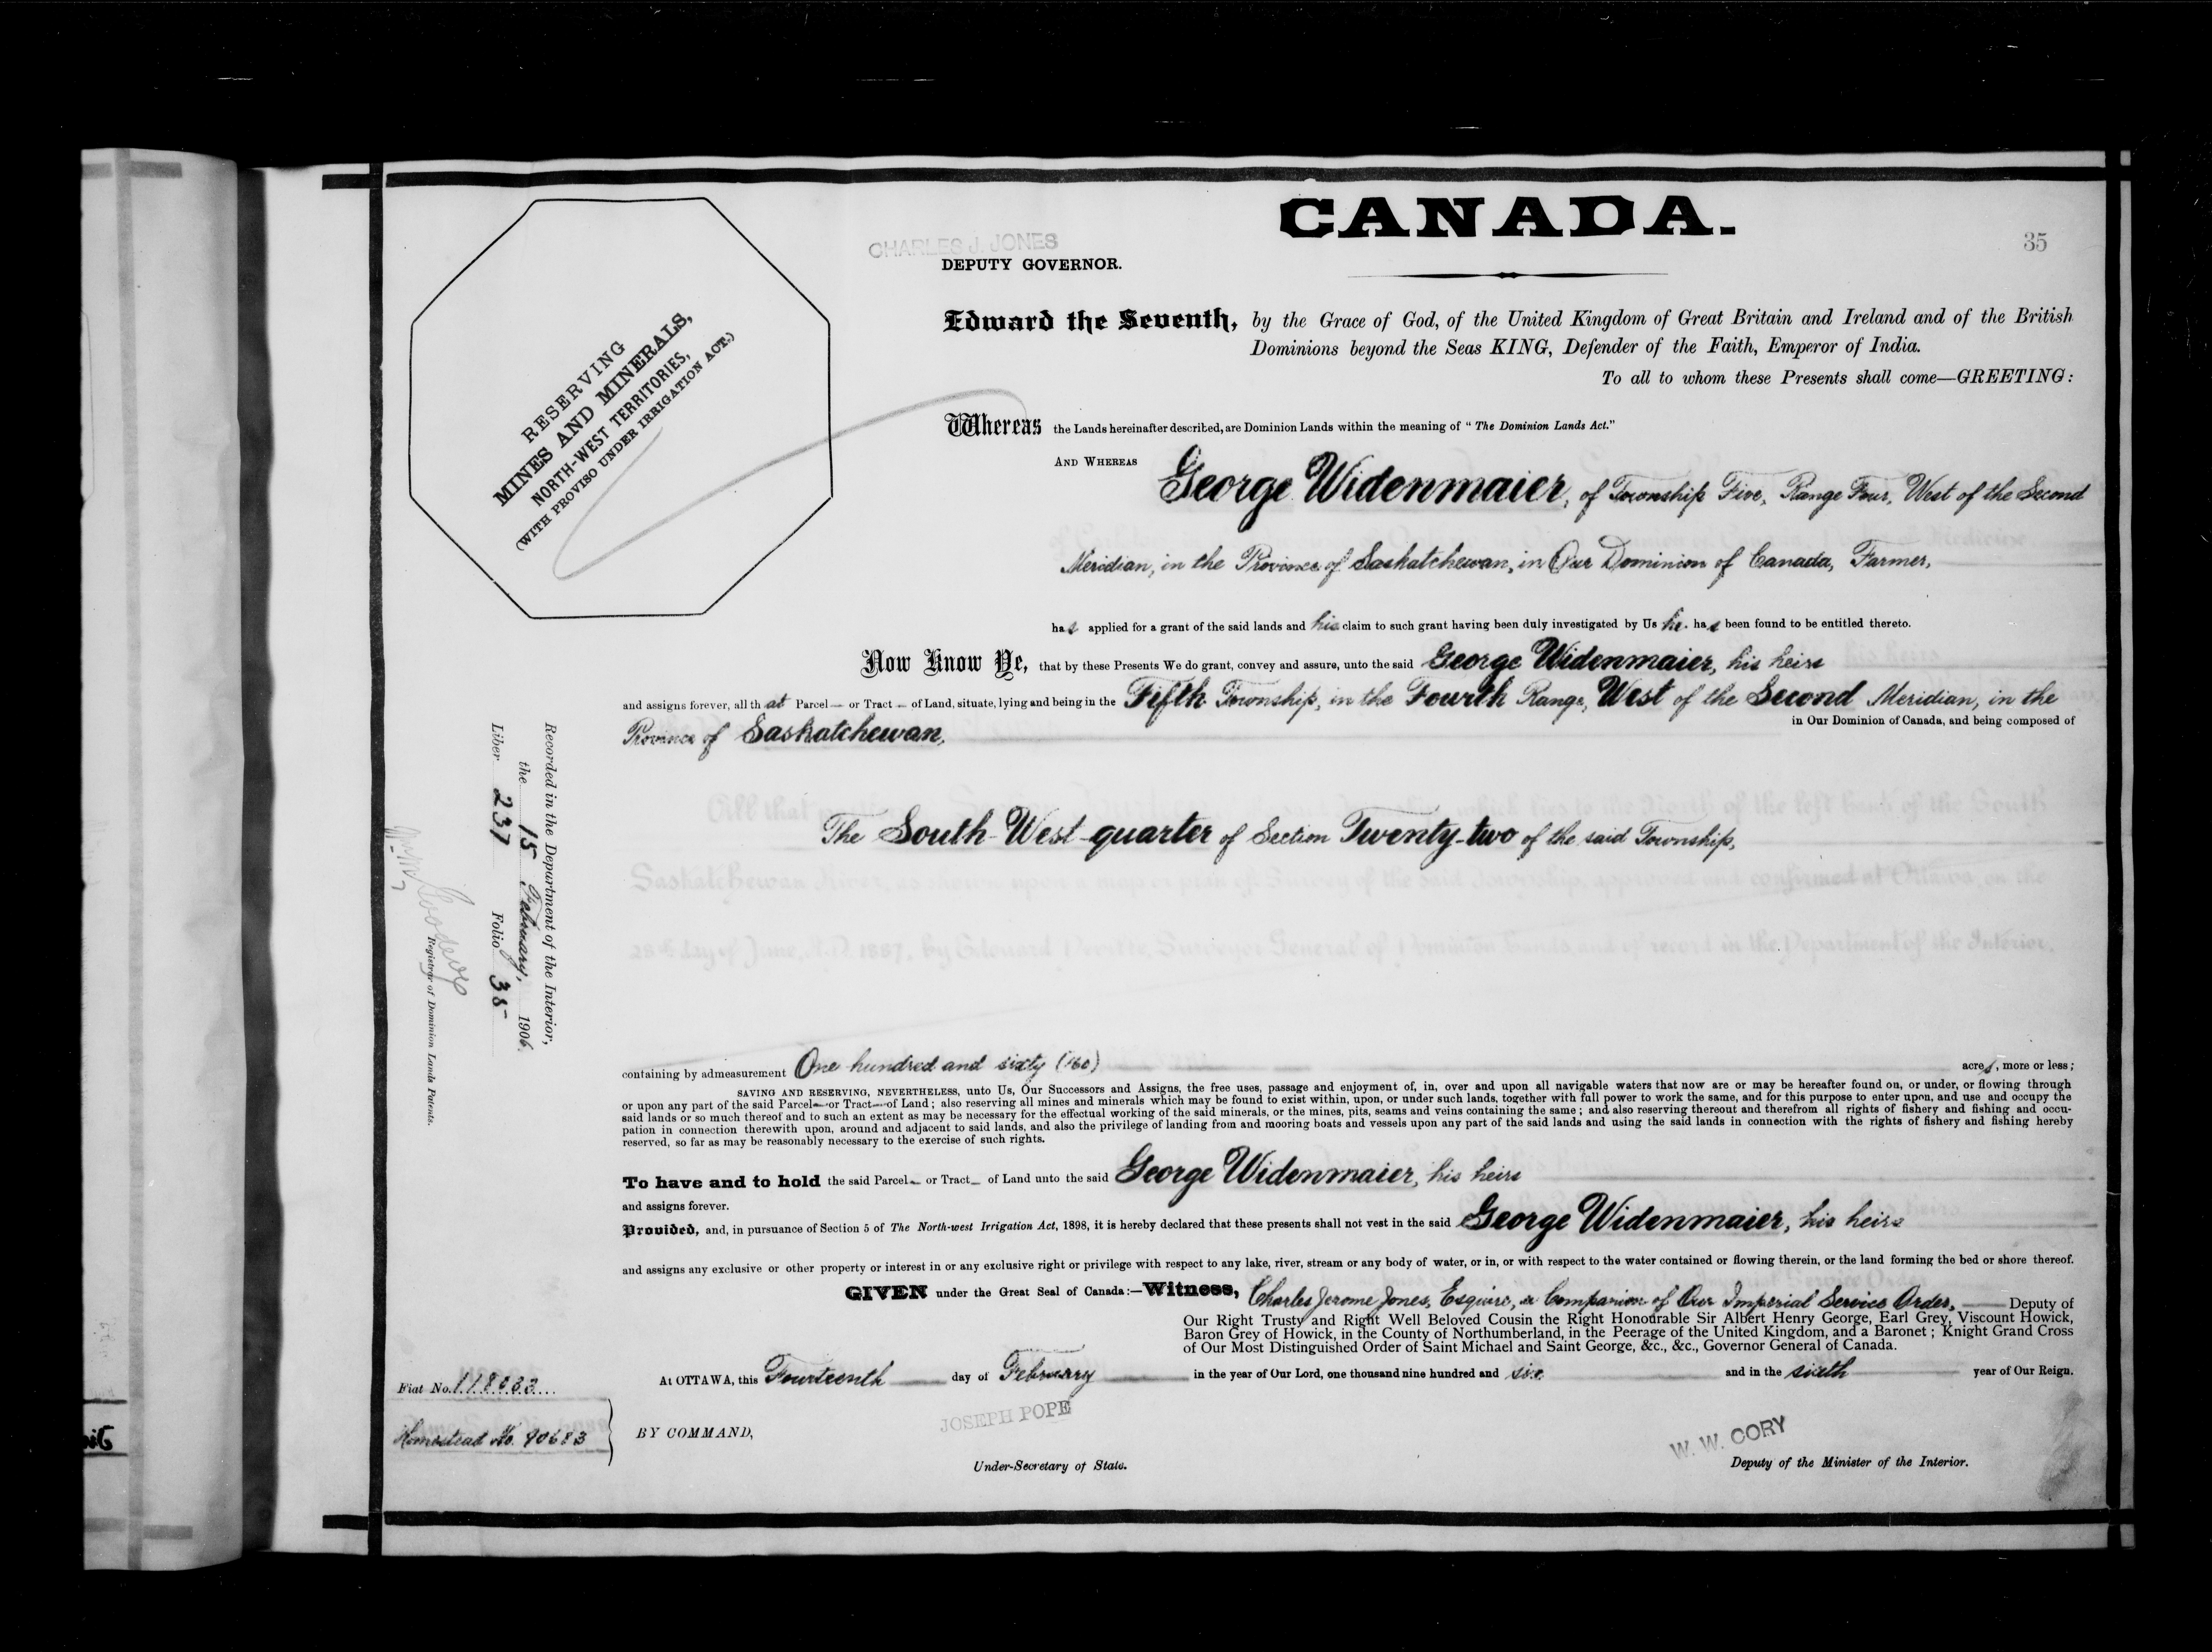 CANADA.
35
CHARLES J. JONES
DEPUTY GOVERNOR.
RESERVING
MINES AND MINERALS,
NORTH-WEST TERRITORIES,
(WITH PROVISO UNDER IRRIGATION ACT.)
Edward the Seventh, by the Grace of God, of the United Kingdom of Great Britain and Ireland and of the British
Dominions beyond the Seas KING, Defender of the Faith, Emperor of India.
To all to whom these Presents shall come—GREETING:
Whereas the Lands hereinafter described, are Dominion Lands within the meaning of "The Dominion Lands Act."
AND WHEREAS George Widenmaier, of Township Five, Range Four, West of the Second
Meridian, in the Province of Saskatchewan, in Our Dominion of Canada, Farmer,
has applied for a grant of the said lands and his claim to such grant having been duly investigated by Us he has been found to be entitled thereto.
Now Know Ye, that by these Presents We do grant, convey and assure, unto the said George Widenmaier, his heirs
and assigns forever, all that Parcel — or Tract — of Land, situate, lying and being in the Fifth Township, in the Fourth Range, West of the Second Meridian, in the
Province of Saskatchewan, in Our Dominion of Canada, and being composed of
The South-West quarter of Section Twenty-two of the said Township,
containing by admeasurement One hundred and sixty (160) acres, more or less;
SAVING AND RESERVING, NEVERTHELESS, unto Us, Our Successors and Assigns, the free uses, passage and enjoyment of, in, over and upon all navigable waters that now are or may be hereafter found on, or under, or flowing through
or upon any part of the said Parcel — or Tract — of Land; also reserving all mines and minerals which may be found to exist within, upon, or under such lands, together with full power to work the same, and for this purpose to enter upon, and use and occupy the
said lands or so much thereof and to such an extent as may be necessary for the effectual working of the said minerals, or the mines, pits, seams and veins containing the same; and also reserving thereout and therefrom all rights of fishery and fishing and occu-
pation in connection therewith upon, around and adjacent to said lands, and also the privilege of landing from and mooring boats and vessels upon any part of the said lands and using the said lands in connection with the rights of fishery and fishing hereby
reserved, so far as may be reasonably necessary to the exercise of such rights.
To have and to hold the said Parcel — or Tract — of Land unto the said George Widenmaier, his heirs
and assigns forever.
Provided, and, in pursuance of Section 5 of The North-west Irrigation Act, 1898, it is hereby declared that these presents shall not vest in the said George Widenmaier, his heirs
and assigns any exclusive or other property or interest in or any exclusive right or privilege with respect to any lake, river, stream or any body of water, or in, or with respect to the water contained or flowing therein, or the land forming the bed or shore thereof.
GIVEN under the Great Seal of Canada:—Witness, Charles Jerome Jones, Esquire, a Companion of Our Imperial Service Order, — Deputy of
Our Right Trusty and Right Well Beloved Cousin the Right Honourable Sir Albert Henry George, Earl Grey, Viscount Howick,
Baron Grey of Howick, in the County of Northumberland, in the Peerage of the United Kingdom, and a Baronet; Knight Grand Cross
of Our Most Distinguished Order of Saint Michael and Saint George, &c., &c., Governor General of Canada.
At OTTAWA, this Fourteenth day of February in the year of Our Lord, one thousand nine hundred and six and in the sixth year of Our Reign.
BY COMMAND,
JOSEPH POPE
Under-Secretary of State.
W. W. CORY
Deputy of the Minister of the Interior.
Recorded in the Department of the Interior,
the 15 February, 1906.
Liber 237 Folio 35
Registrar of Dominion Lands Patents.
Fiat No. 118633
Homestead No. 90683